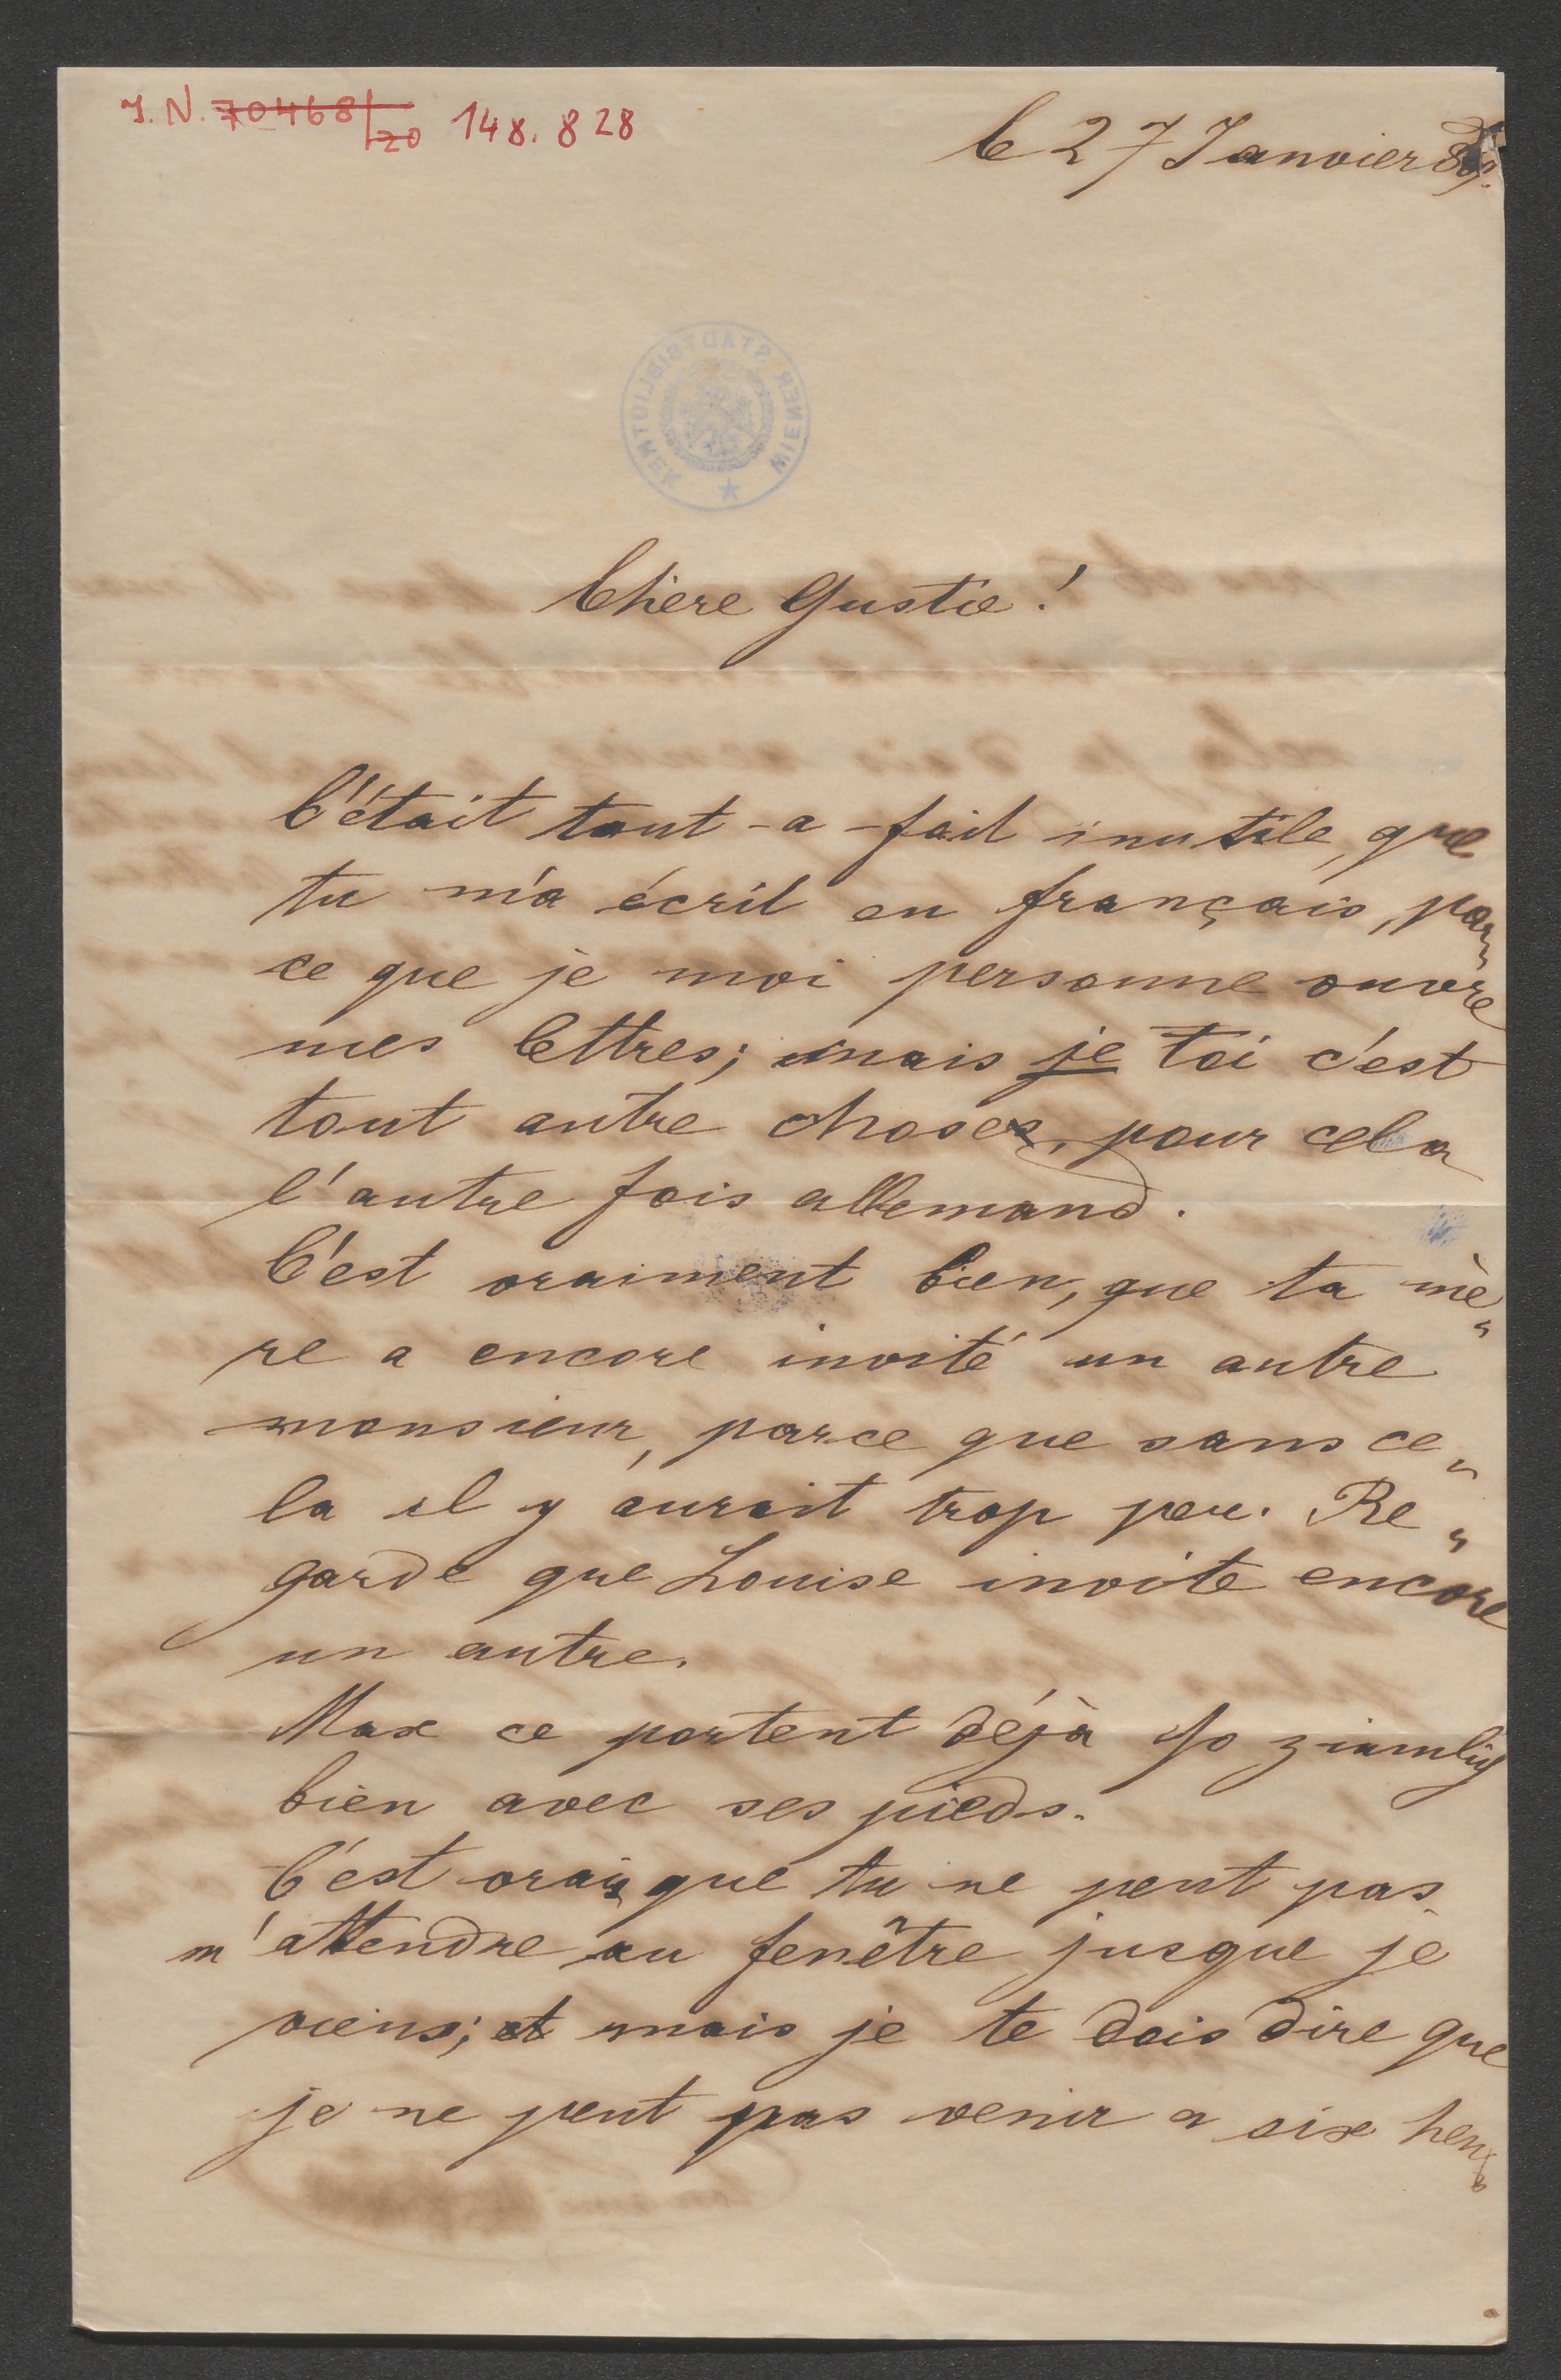 J. N. 70468/20 148.828
le 27 Janvier 89.
WIENER STADTBIBLIOTHEK
Chère Gustie!
C'était tout-a-fait inutile, que
tu m'a écrit en français, par„
ce que je moi personne ouvre
mes lettres; mais je toi c'est
tout autre chose, pour cela
l'autre fois allemand.
C'est vraiment bien, que ta mè„
re a encore invité un autre
monsieur, parce que sans ce„
la il y aurait trop peu. Re„
garde que Louise invite encore
un autre.
Max ce portent déjà so ziamlig
bien avec ses pieds.
C'est vrai que tu ne peut pas
m'attendre au fenêtre jusque je
viens; et mais je te dois dire que
je ne peut pas venir a six heu„